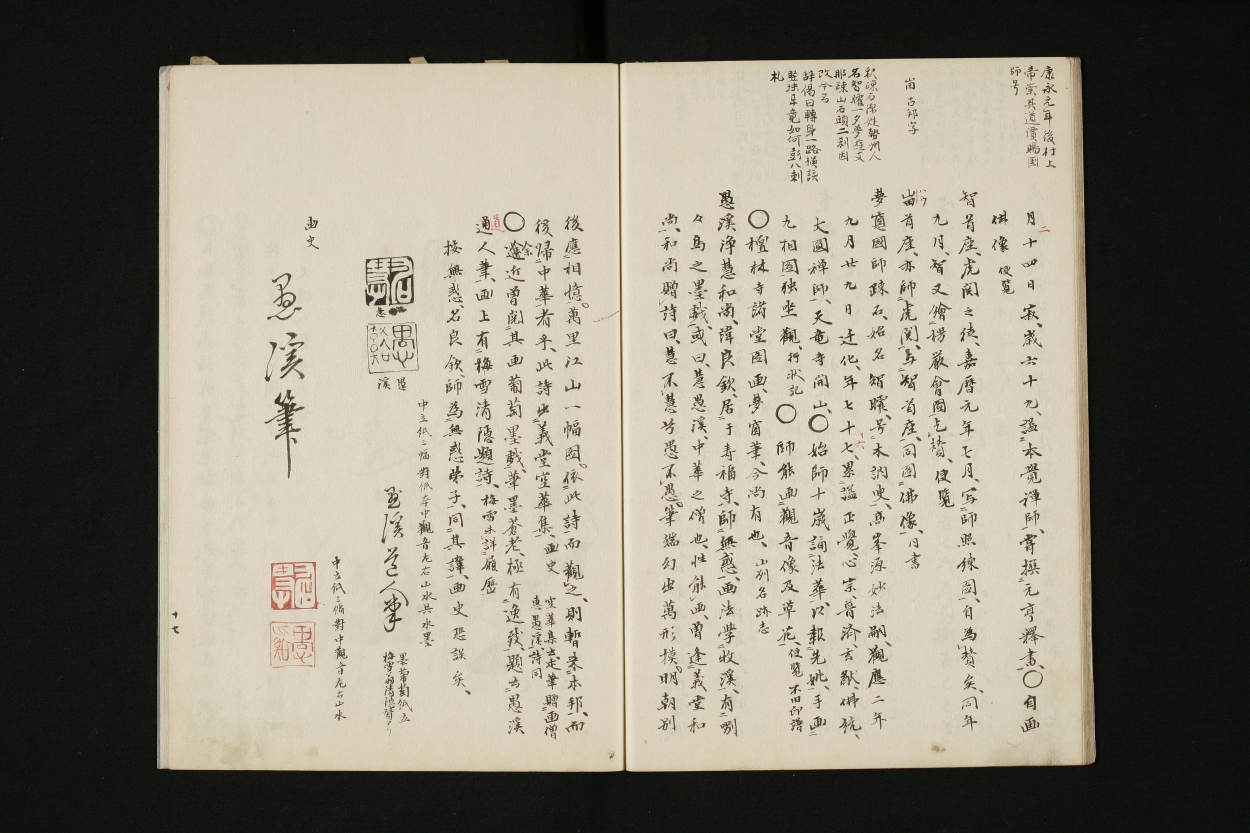 康永元年後村上
帝崇其道價賜国
師号
崗古邦字
釈疎石源姓勢州人
名智曤一夕夢遊
那疎山石頭二刹因
改今名
辞偈曰轉身一路横該
竪抹畢竟如何彭八刺
札
月十四日寂、歳六十九、謚本覚禅師、嘗撰元亨釋書、〇自画
佛像 便覧
智首座、虎関之徒、嘉暦元年七月、写師照練図、自為賛矣、同年
九月、智又繪楞厳會図乞賛、便覧
崗首座、亦師虎関、与智首座、同図佛像、同書
夢窓國師疎石、始名智曤、号木訥叟、高峯海妙法嗣、観應二年
九月廿九日迁化、年七十七、累謚正覚心宗普済玄猷佛統
大國禅師、天竜寺開山、〇始師十歳誦法華、以報先妣、手画
九相図独坐観、行状記 〇師能画観音像及草花、便覧 不旧印譜
〇檀林寺諸堂図画、夢窓筆、今尚有也、山州名跡志
愚溪浄慧和尚、諱良欽、居于寿福寺、師無惑、画法学牧溪、有
々鳥之墨戯、或曰、慧愚溪、中華之僧也、性能画、曽逢義堂和
尚、和尚贈詩曰、慧不慧兮愚不愚、筆端幻出萬形模、明朝別
後應相憶、萬里江山一幅図、依此詩而観之、則暫来本邦、而
後帰中華者乎、此詩出義堂空華集、画史 空華集云走筆贈画僧
恵愚溪詩同
〇余邂近曽閲其画葡萄墨戯、筆墨蒼老、極有逸致、題云愚溪
道人筆、画上有梅雪清隠題詩、梅雪未詳履歴
按無惑、名良欽、師為無惑弟子、同其諱、画史恐誤矣、
愚溪
愚溪道人筆
墨葡萄紙立
梅雪翁清隠賛アリ
中立紙三幅對紙本中観音左右山水共水墨
画史
愚溪筆
中立紙三幅對中観音左右山水
十七